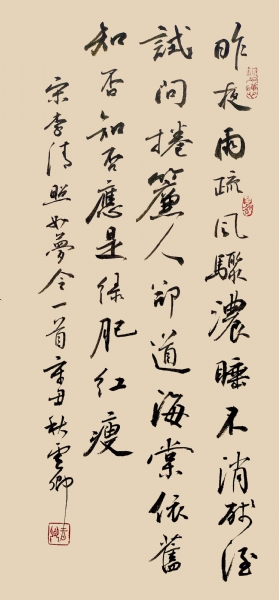 昨夜雨疏風驟濃睡不消殘酒
試問捲簾人卻道海棠依舊
知否知否應是綠肥紅瘦
宋李清照如夢令一首辛丑秋雲卿